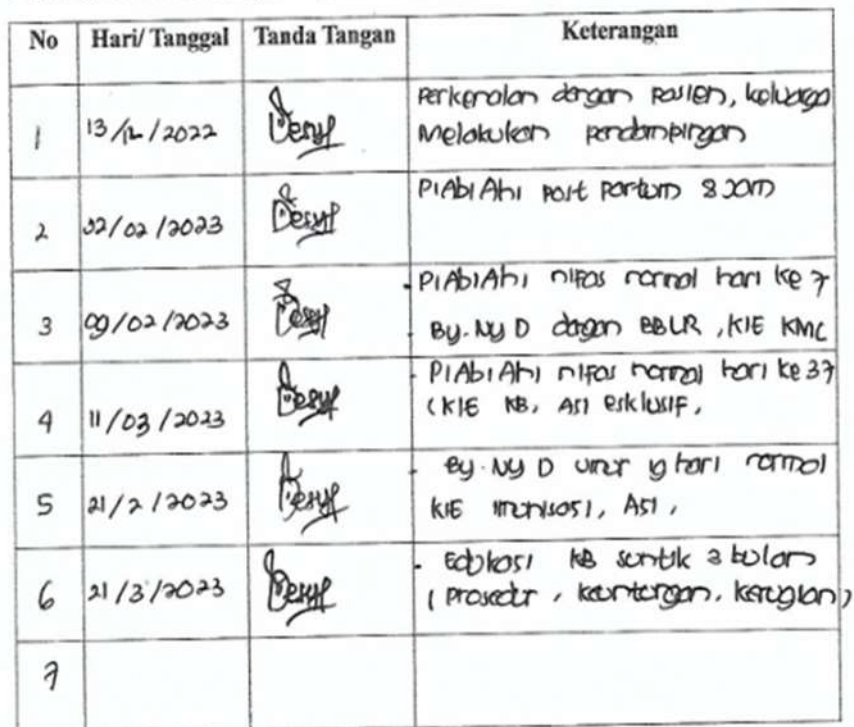 No Hari/ Tanggal Tanda Tangan Keterangan
1 13/12/2022 Desyf Perkenalan dengan pasien, keluarga
Melakukan pendampingan
2 02/02/2023 Desyf P1Ab1Ah1 post partum 8 jam
3 09/02/2023 Desyf - P1Ab1Ah1 nifas normal hari ke 7
- By. Ny D dengan BBLR, KIE KMC
4 11/03/2023 Desyf - P1Ab1Ah1 nifas normal hari ke 37
(KIE KB, ASI esklusif,
5 21/2/2023 Desyf - By. Ny D umur 19 hari normal
KIE imunisasi, ASI,
6 21/3/2023 Desyf - Edukasi KB suntik 3 bulan
(prosedur, keuntungan, kerugian)
7